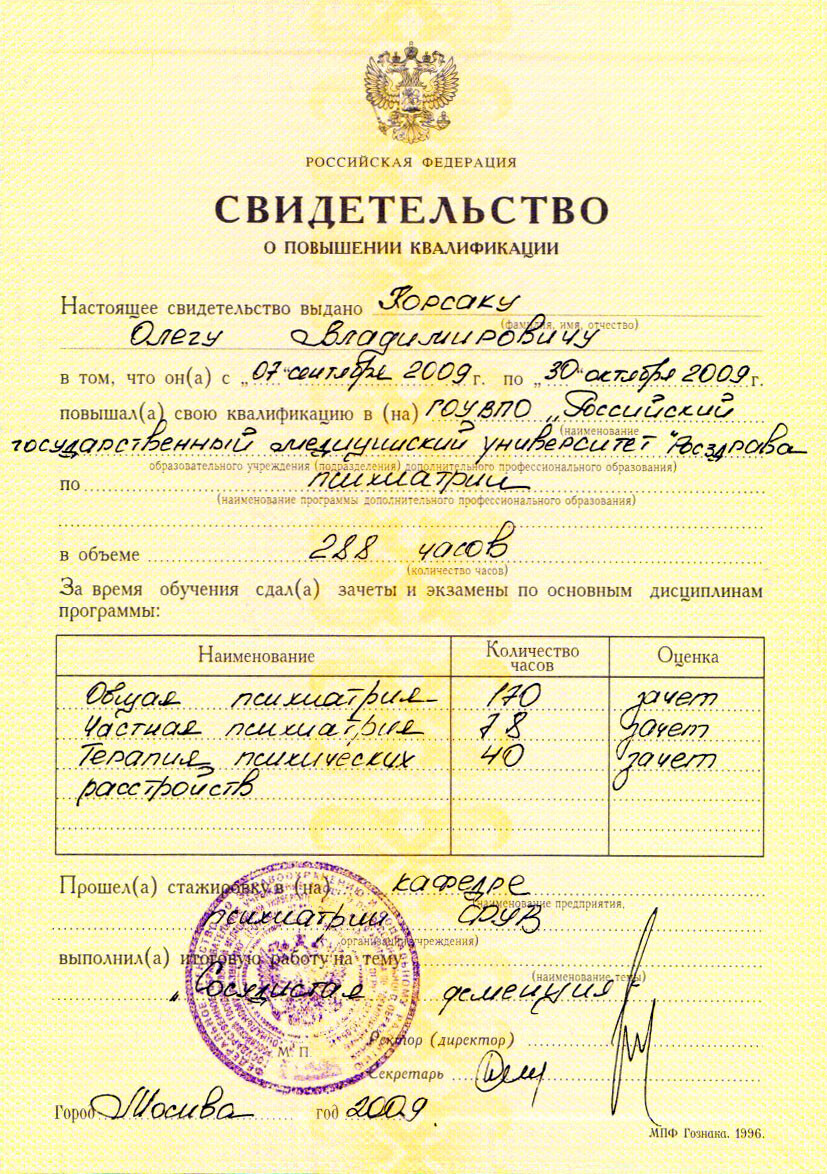 РОССИЙСКАЯ ФЕДЕРАЦИЯ
СВИДЕТЕЛЬСТВО
О ПОВЫШЕНИИ КВАЛИФИКАЦИИ
Настоящее свидетельство выдано Корсаку
(фамилия, имя, отчество)
Олегу Владимировичу
в том, что он(а) с „07“ сентября 2009 г. по „30“ октября 2009 г.
повышал(а) свою квалификацию в (на) ГОУВПО „Российский
(наименование
государственный медицинский университет“ Росздрава
образовательного учреждения (подразделения) дополнительного профессионального образования)
по психиатрии
(наименование программы дополнительного профессионального образования)
в объеме 288 часов
(количество часов)
За время обучения сдал(а) зачеты и экзамены по основным дисциплинам
программы:
Наименование Количество часов Оценка
Общая психиатрия 170 зачет
Частная психиатрия 78 зачет
Терапия психических 40 зачет
расстройств
Прошел(а) стажировку в (на) кафедре
(наименование предприятия,
психиатрии
организации, учреждения)
выполнил(а) итоговую работу на тему
(наименование темы)
„Сосудистая деменция“
Ректор (директор)
М. П.
Секретарь
Город Москва год 2009
МПФ Гознака. 1996.